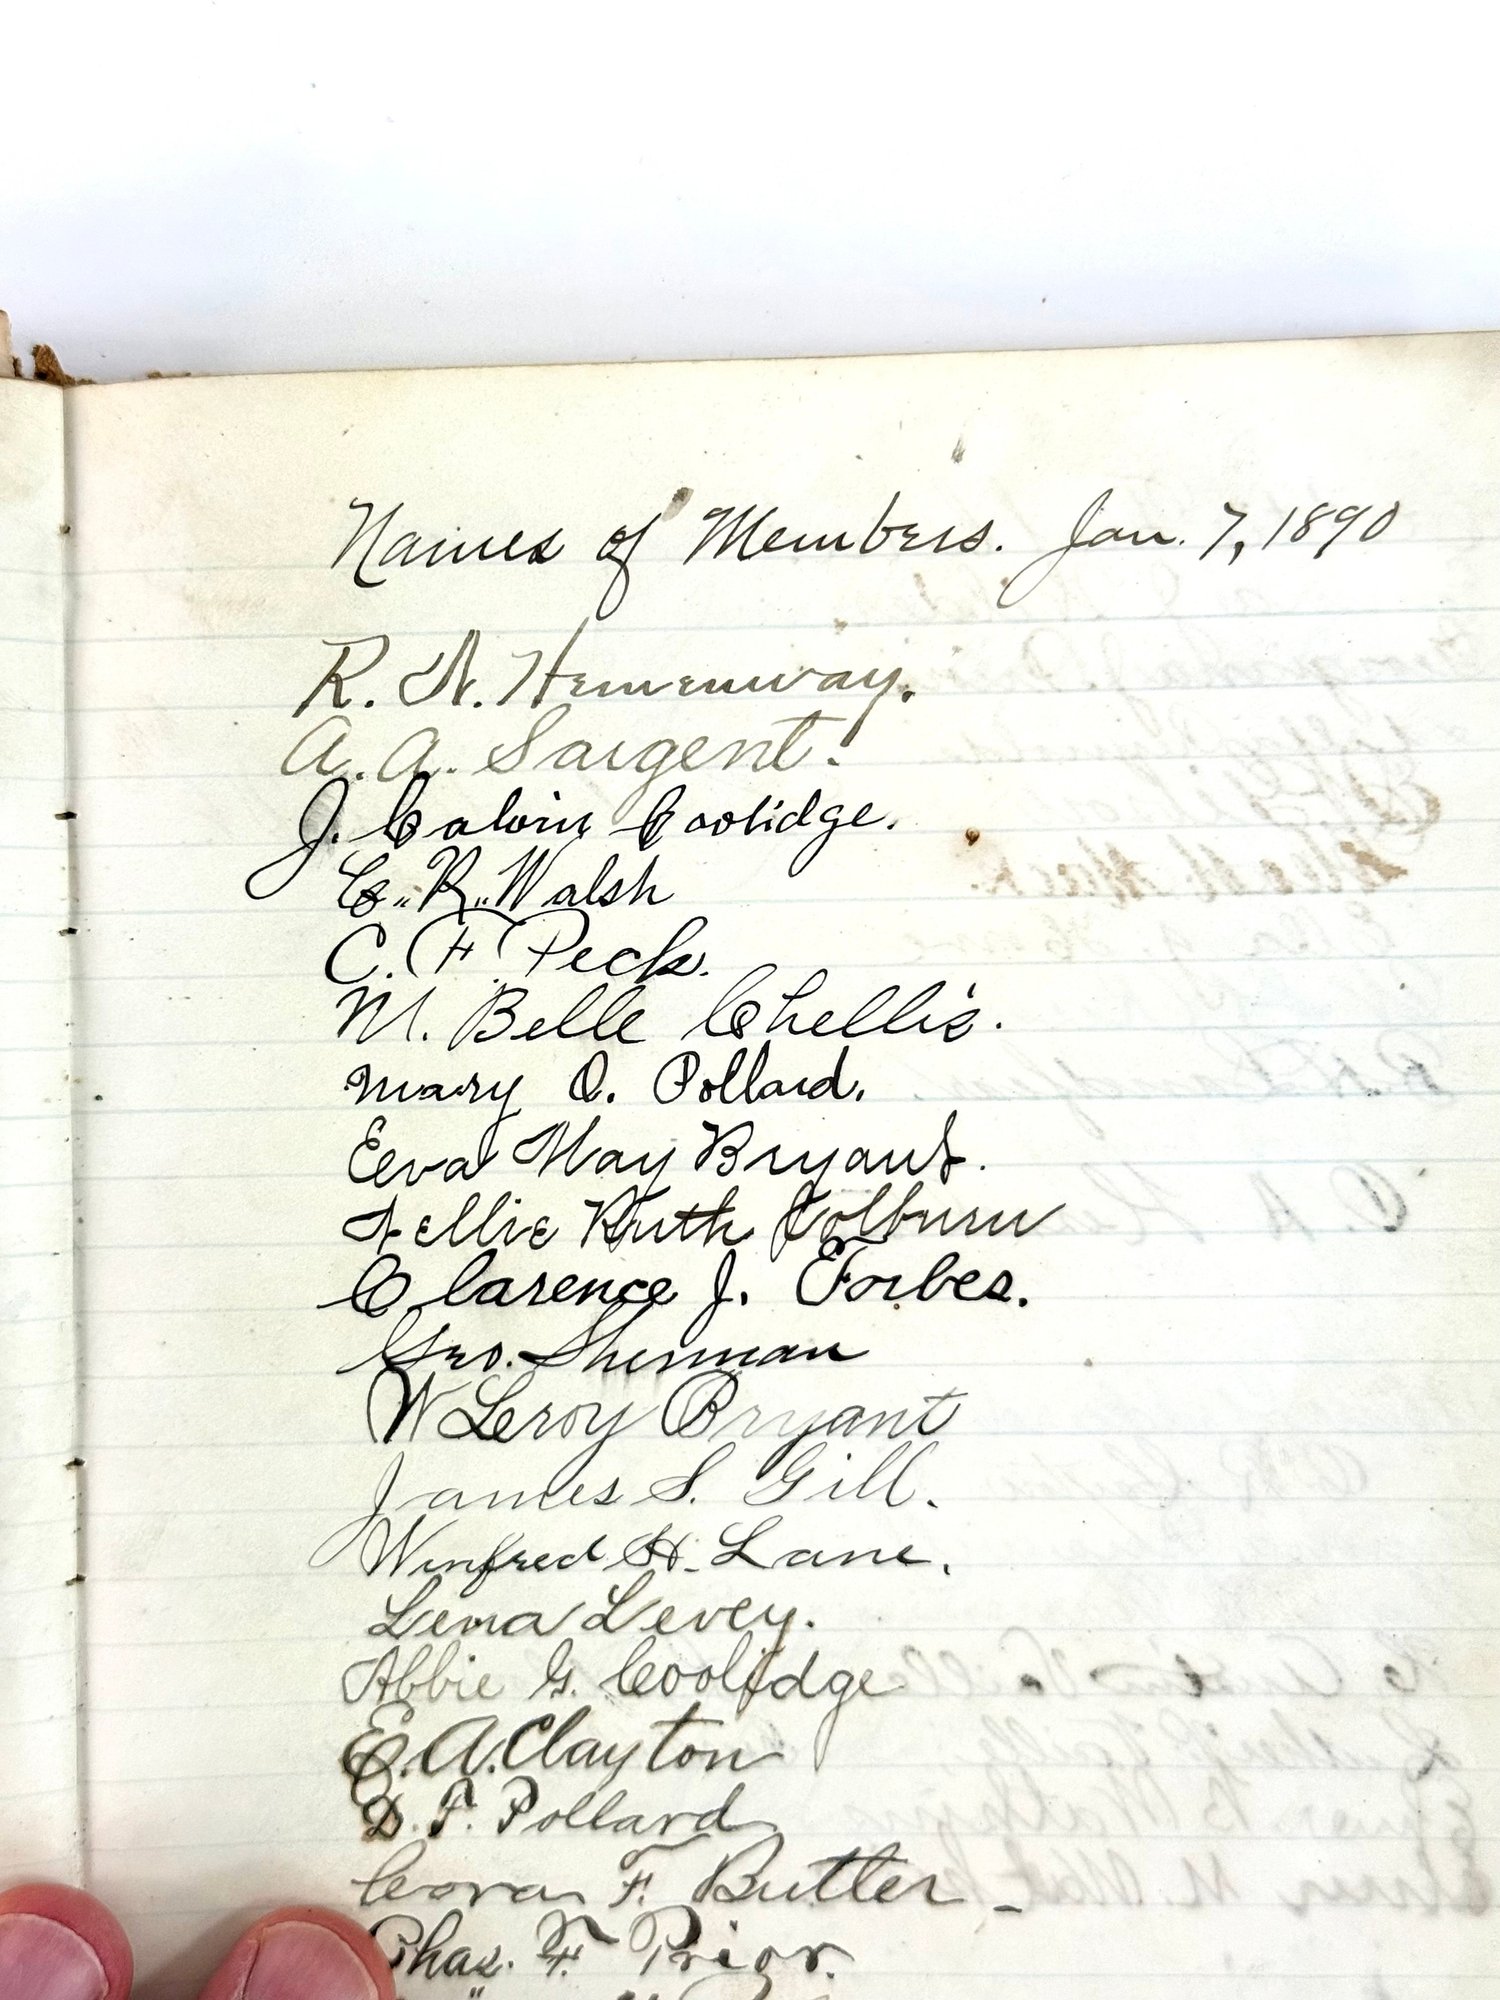 Names of Members. Jan. 7, 1890
R. N. Hemenway.
A. A. Sargent.
J. Calvin Coolidge.
C. R. Walsh
C. F. Peck.
M. Belle Chellis.
Mary O. Pollard.
Eva May Bryant.
Nellie Ruth Colburn
Clarence J. Forbes.
Geo. Sherman
W Leroy Bryant
James S. Gill.
Winfred H. Lane.
Lena Levey.
Abbie G. Coolidge
E. A. Clayton
D. F. Pollard
Cora F. Butler
Chas. F. Prior.